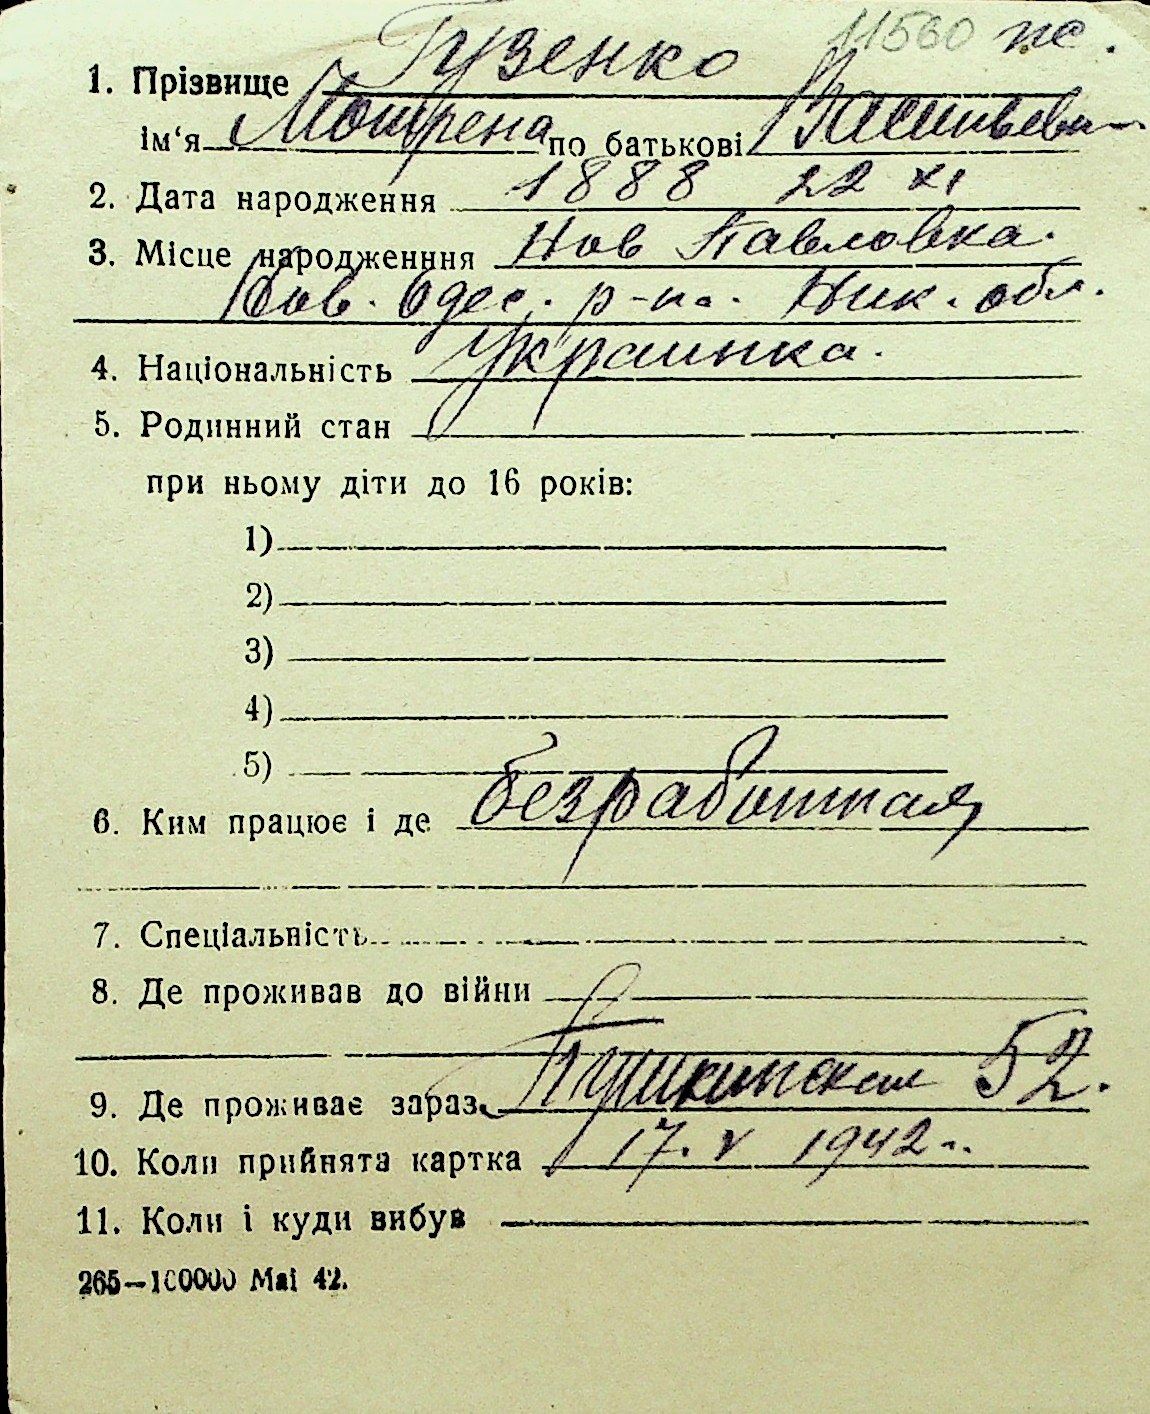 11560 пс.
1. Прізвище Гузенко
ім‘я Мотрена по батькові Васильевн
2. Дата народження 1888 22 XI
3. Місце народженння Нов Павловка.
Нов. Одес. р-на. Ник. обл.
4. Національність Украинка.
5. Родинний стан
при ньому діти до 16 років:
1)
2)
3)
4)
5)
6. Ким працює і де безработная
7. Спеціальність
8. Де проживав до війни
9. Де проживає зараз Пушкинская 52.
10. Коли прийнята картка 17. V 1942 г.
11. Коли і куди вибув
265—100000 Mai 42.